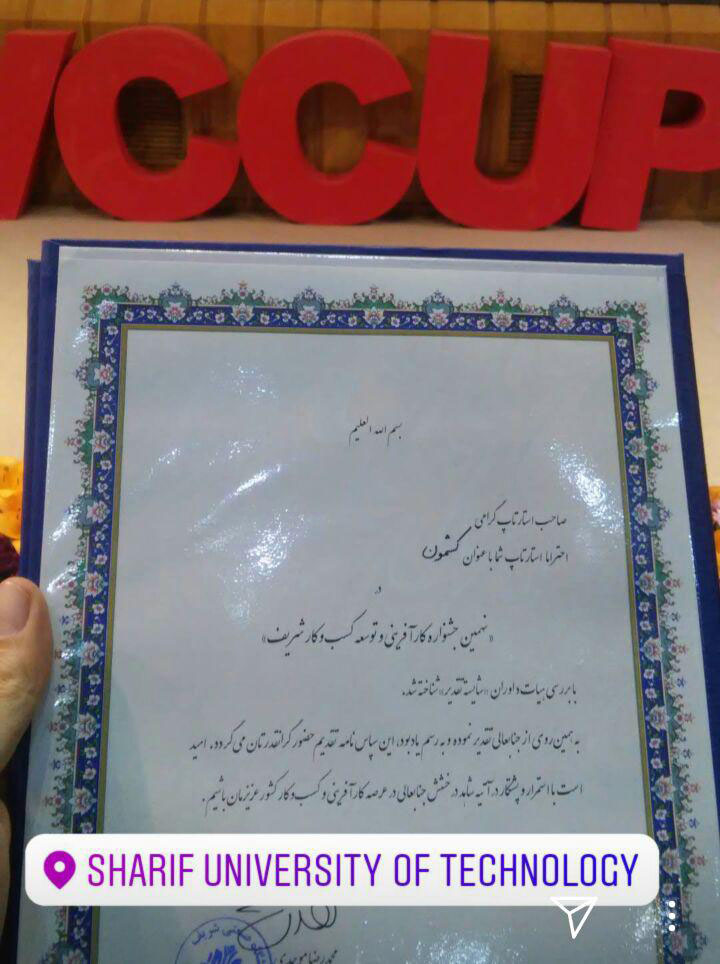 VCCUP
بسم الله العلیم
صاحب استارتاپ گرامی
احتراما استارتاپ شما با عنوان کشمون
در
«نهمین جشنواره کارآفرینی و توسعه کسب و کار شریف»
با بررسی هیات داوران «شایسته تقدیر» شناخته شد.
به همین روی از جنابعالی تقدیر نموده و به رسم یادبود، این سپاس نامه تقدیم حضور گرانقدرتان می گردد. امید
است با استمرار و پشتکار در آتیه شاهد درخشش جنابعالی در عرصه کارآفرینی و کسب و کار کشور عزیزمان باشیم.
SHARIF UNIVERSITY OF TECHNOLOGY
صنعتی شریف
محمدرضا موحدی